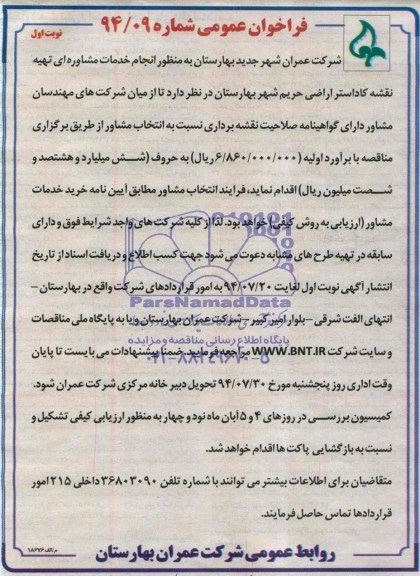 فراخوان عمومی شماره ۹۴/۰۹
نوبت اول
شرکت عمران شهر جدید بهارستان به منظور انجام خدمات مشاوره ای تهیه
نقشه کاداستر اراضی حریم شهر بهارستان در نظر دارد تا از میان شرکت های مهندسان
مشاور دارای گواهینامه صلاحیت نقشه برداری نسبت به انتخاب مشاور از طریق برگزاری
مناقصه با برآورد اولیه (۶/۸۶۰/۰۰۰/۰۰۰ ریال) به حروف (شش میلیارد و هشتصد و
شصت میلیون ریال) اقدام نماید، فرایند انتخاب مشاور مطابق آیین نامه خرید خدمات
مشاور (ارزیابی به روش کیفی) خواهد بود. لذا از کلیه شرکت های واجد شرایط فوق و دارای
سابقه در تهیه طرح های مشابه دعوت می شود جهت کسب اطلاع و دریافت اسناد از تاریخ
انتشار آگهی نوبت اول لغایت ۹۴/۰۷/۲۰ به امور قراردادهای شرکت واقع در بهارستان -
ParsNamadData
انتهای الفت شرقی - بلوار امیرکبیر - شرکت عمران بهارستان و یا به پایگاه ملی مناقصات
پایگاه اطلاع رسانی مناقصه و مزایده
و سایت شرکت WWW.BNT.IR مراجعه فرمایید. ضمنا پیشنهادات می بایست تا پایان
۰۲۱-۸۸۳۴۹۶۷۰-۵
وقت اداری روز پنجشنبه مورخ ۹۴/۰۷/۳۰ تحویل دبیر خانه مرکزی شرکت عمران شود.
کمیسیون بررسی در روزهای ۴ و ۵ آبان ماه نود و چهار به منظور ارزیابی کیفی تشکیل و
نسبت به بازگشایی پاکت ها اقدام خواهد شد.
متقاضیان برای اطلاعات بیشتر می توانند با شماره تلفن ۳۶۸۰۳۰۹۰ داخلی ۲۱۵ امور
قراردادها تماس حاصل فرمایند.
روابط عمومی شرکت عمران بهارستان
م/الف ۱۸۶۷۶